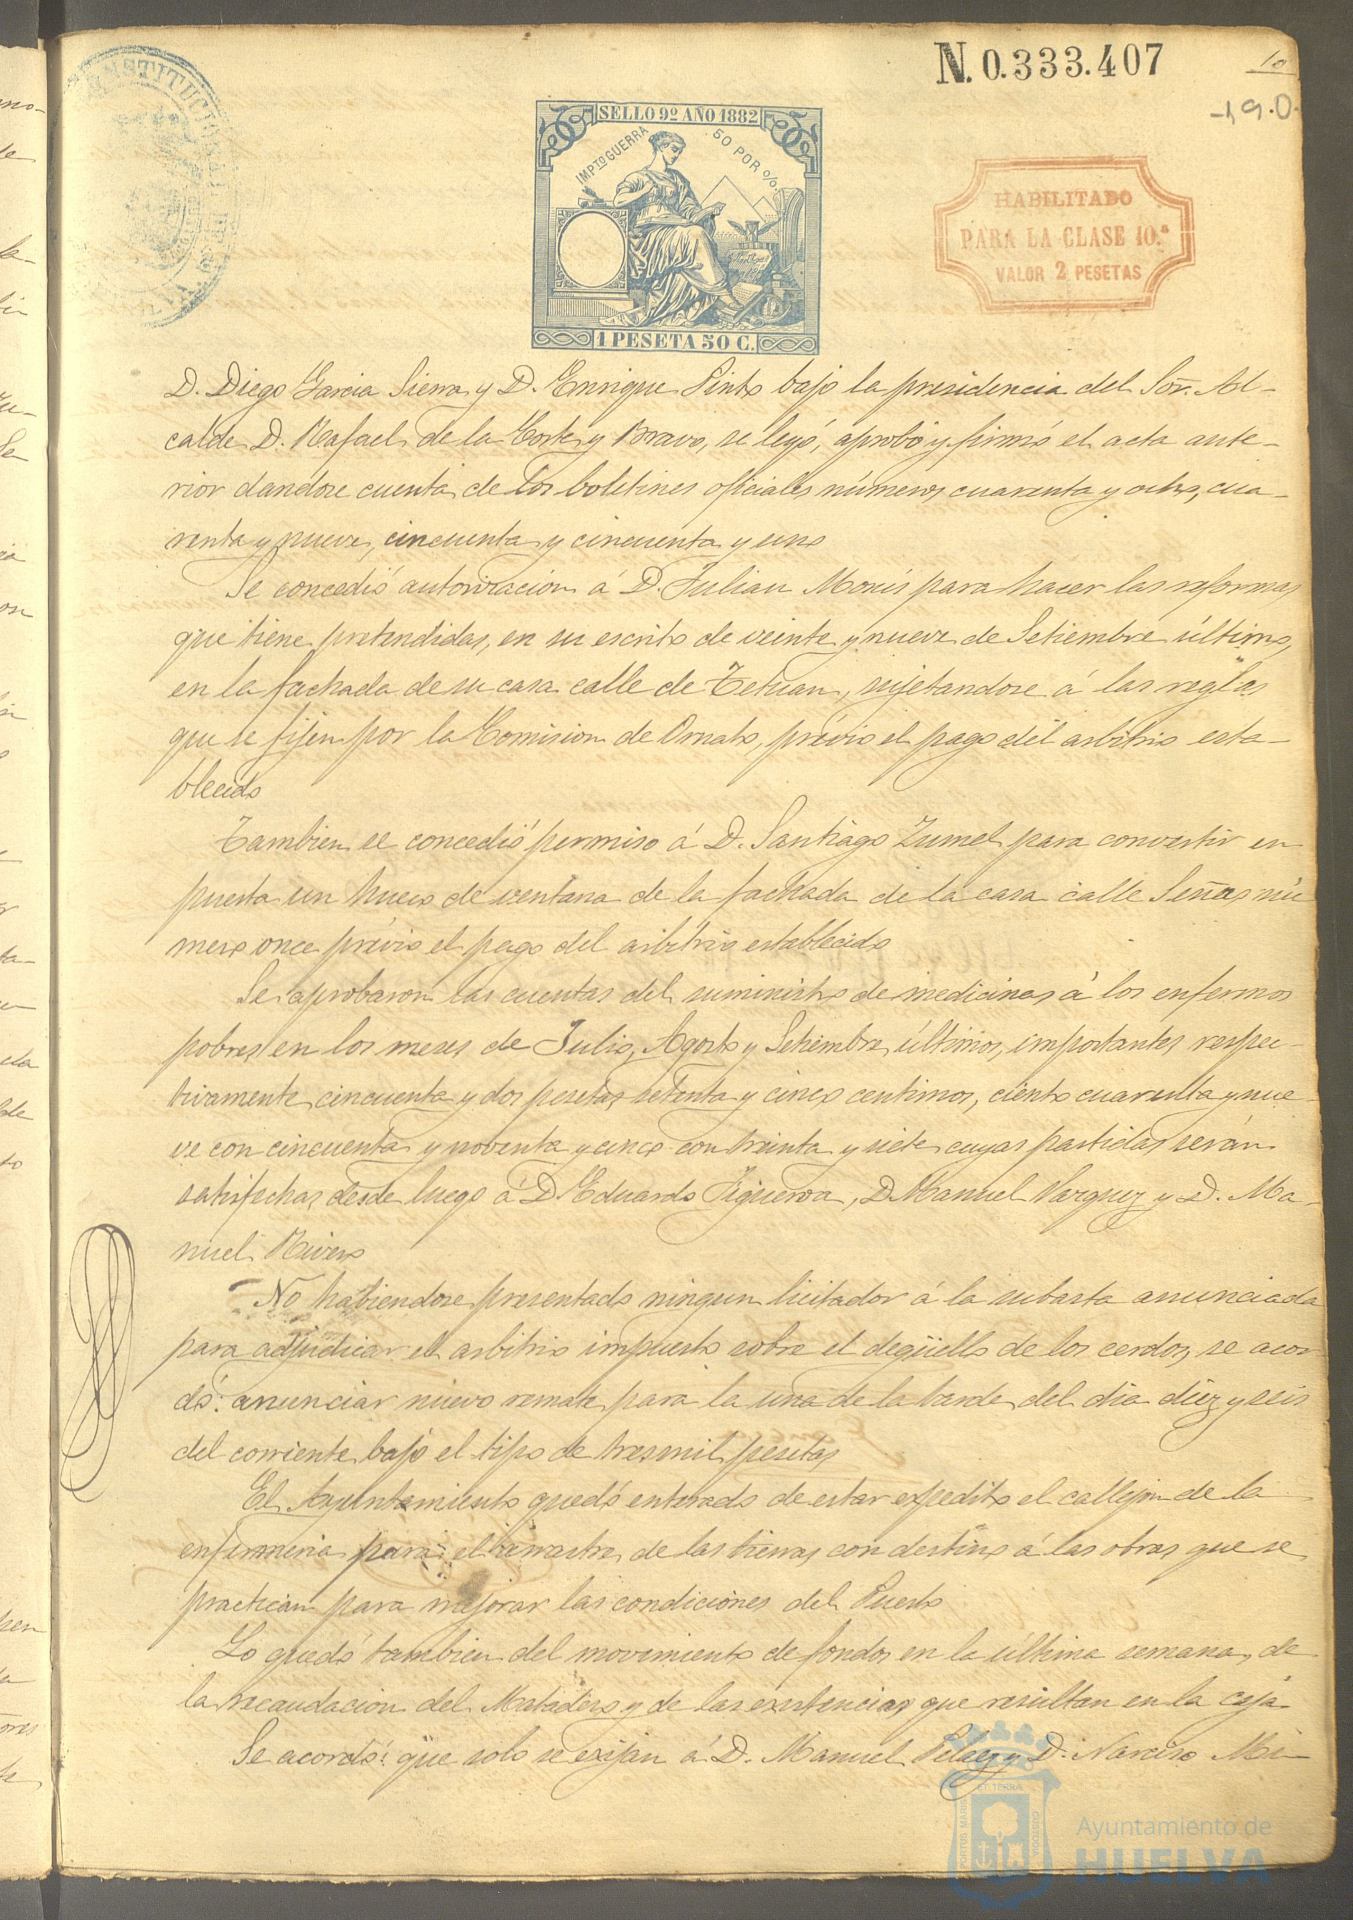 N. 0.333.407
10
190.
CONSTITUCIONAL DE
SELLO 9º AÑO 1882
IMPTO GUERRA 50 POR %.
1 PESETA 50 C.
HABILITADO
PARA LA CLASE 10.ª
VALOR 2 PESETAS
D. Diego Garcia Sierra y D. Enrique Pinto bajo la presidencia del Sor. Al-
calde D. Rafael de la Corte y Bravo, se leyó, aprobó y firmó el acta ante-
rior dandose cuenta de los boletines oficiales números cuarenta y ocho, cua-
renta y nueve, cincuenta y cincuenta y uno
Se concedió autorizacion á D. Julian Monis para hacer las reformas
que tiene pretendidas, en su escrito de veinte y nueve de Setiembre último,
en la fachada de su casa calle de Tetuan, sujetandose á las reglas
que se fijen por la Comision de Ornato, prévio el pago del arbitrio esta-
blecido
Tambien se concedió permiso á D. Santiago Zumel para convertir en
puerta un hueco de ventana de la fachada de la casa calle Señas nú
mero once prévio el pago del arbitrio establecido
Se aprobaron las cuentas del suministro de medicinas á los enfermos
pobres en los meses de Julio, Agosto y Setiembre últimos, importantes respec-
tivamente cincuenta y dos pesetas setenta y cinco centimos, ciento cuarenta y nue-
ve con cincuenta y noventa y cinco con treinta y siete cuyas partidas serán
satisfechas desde luego á D. Eduardo Figueroa, D. Manuel Vazquez y D. Ma-
nuel Rivero
No habiendose presentado ningun licitador á la subasta anunciada
para adjudicar el arbitrio impuesto sobre el degüello de los cerdos, se acor
dó: anunciar nuevo remate para la una de la tarde del dia diez y seis
del corriente bajo el tipo de tresmil pesetas
El Ayuntamiento quedó enterado de estar expedito el callejon de la
enfermeria para el arrastre de las tierras con destino á las obras que se
practican para mejorar las condiciones del Puerto
Lo quedó tambien del movimiento de fondos en la última semana, de
la recaudacion del Matadero y de las existencias que resultan en la caja
Se acordó: que solo se exijan á D. Manuel Pelaez y D. Narciso Mi-
PORTUS MARIS ET TERRAE CUSTODIA
Ayuntamiento de
HUELVA